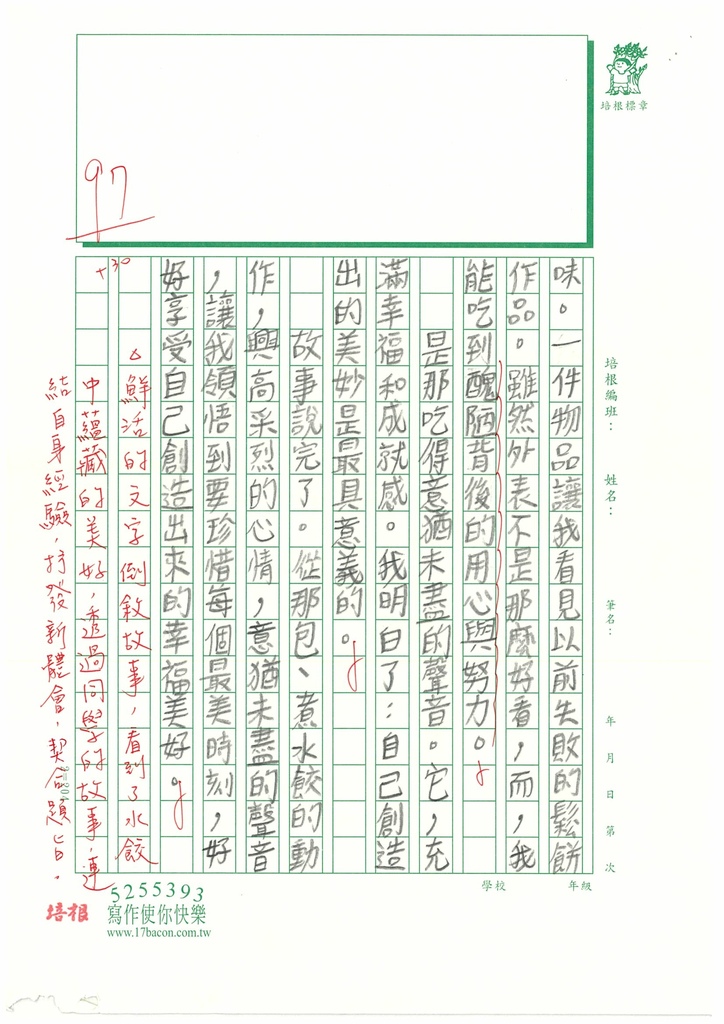 培根標章
97
+30
培根編班：　姓名：　筆名：　年　月　日　第　次
學校　年級
味。一件物品讓我看見以前失敗的鬆餅
作品。雖然外表不是那麼好看，而，我
能吃到醜陋背後的用心與努力。
是那吃得意猶未盡的聲音。它，充
滿幸福和成就感。我明白了：自己創造
出的美妙是最具意義的。
故事說完了。從那包、煮水餃的動
作，興高采烈的心情，意猶未盡的聲音
，讓我領悟到要珍惜每個最美時刻，好
好享受自己創造出來的幸福美好。
△鮮活的文字倒敘故事，看到了水餃
中蘊藏的美好，透過同學的故事，連
結自身經驗，抒發新體會，契合題旨。
培根
5255393
寫作使你快樂
www.17bacon.com.tw